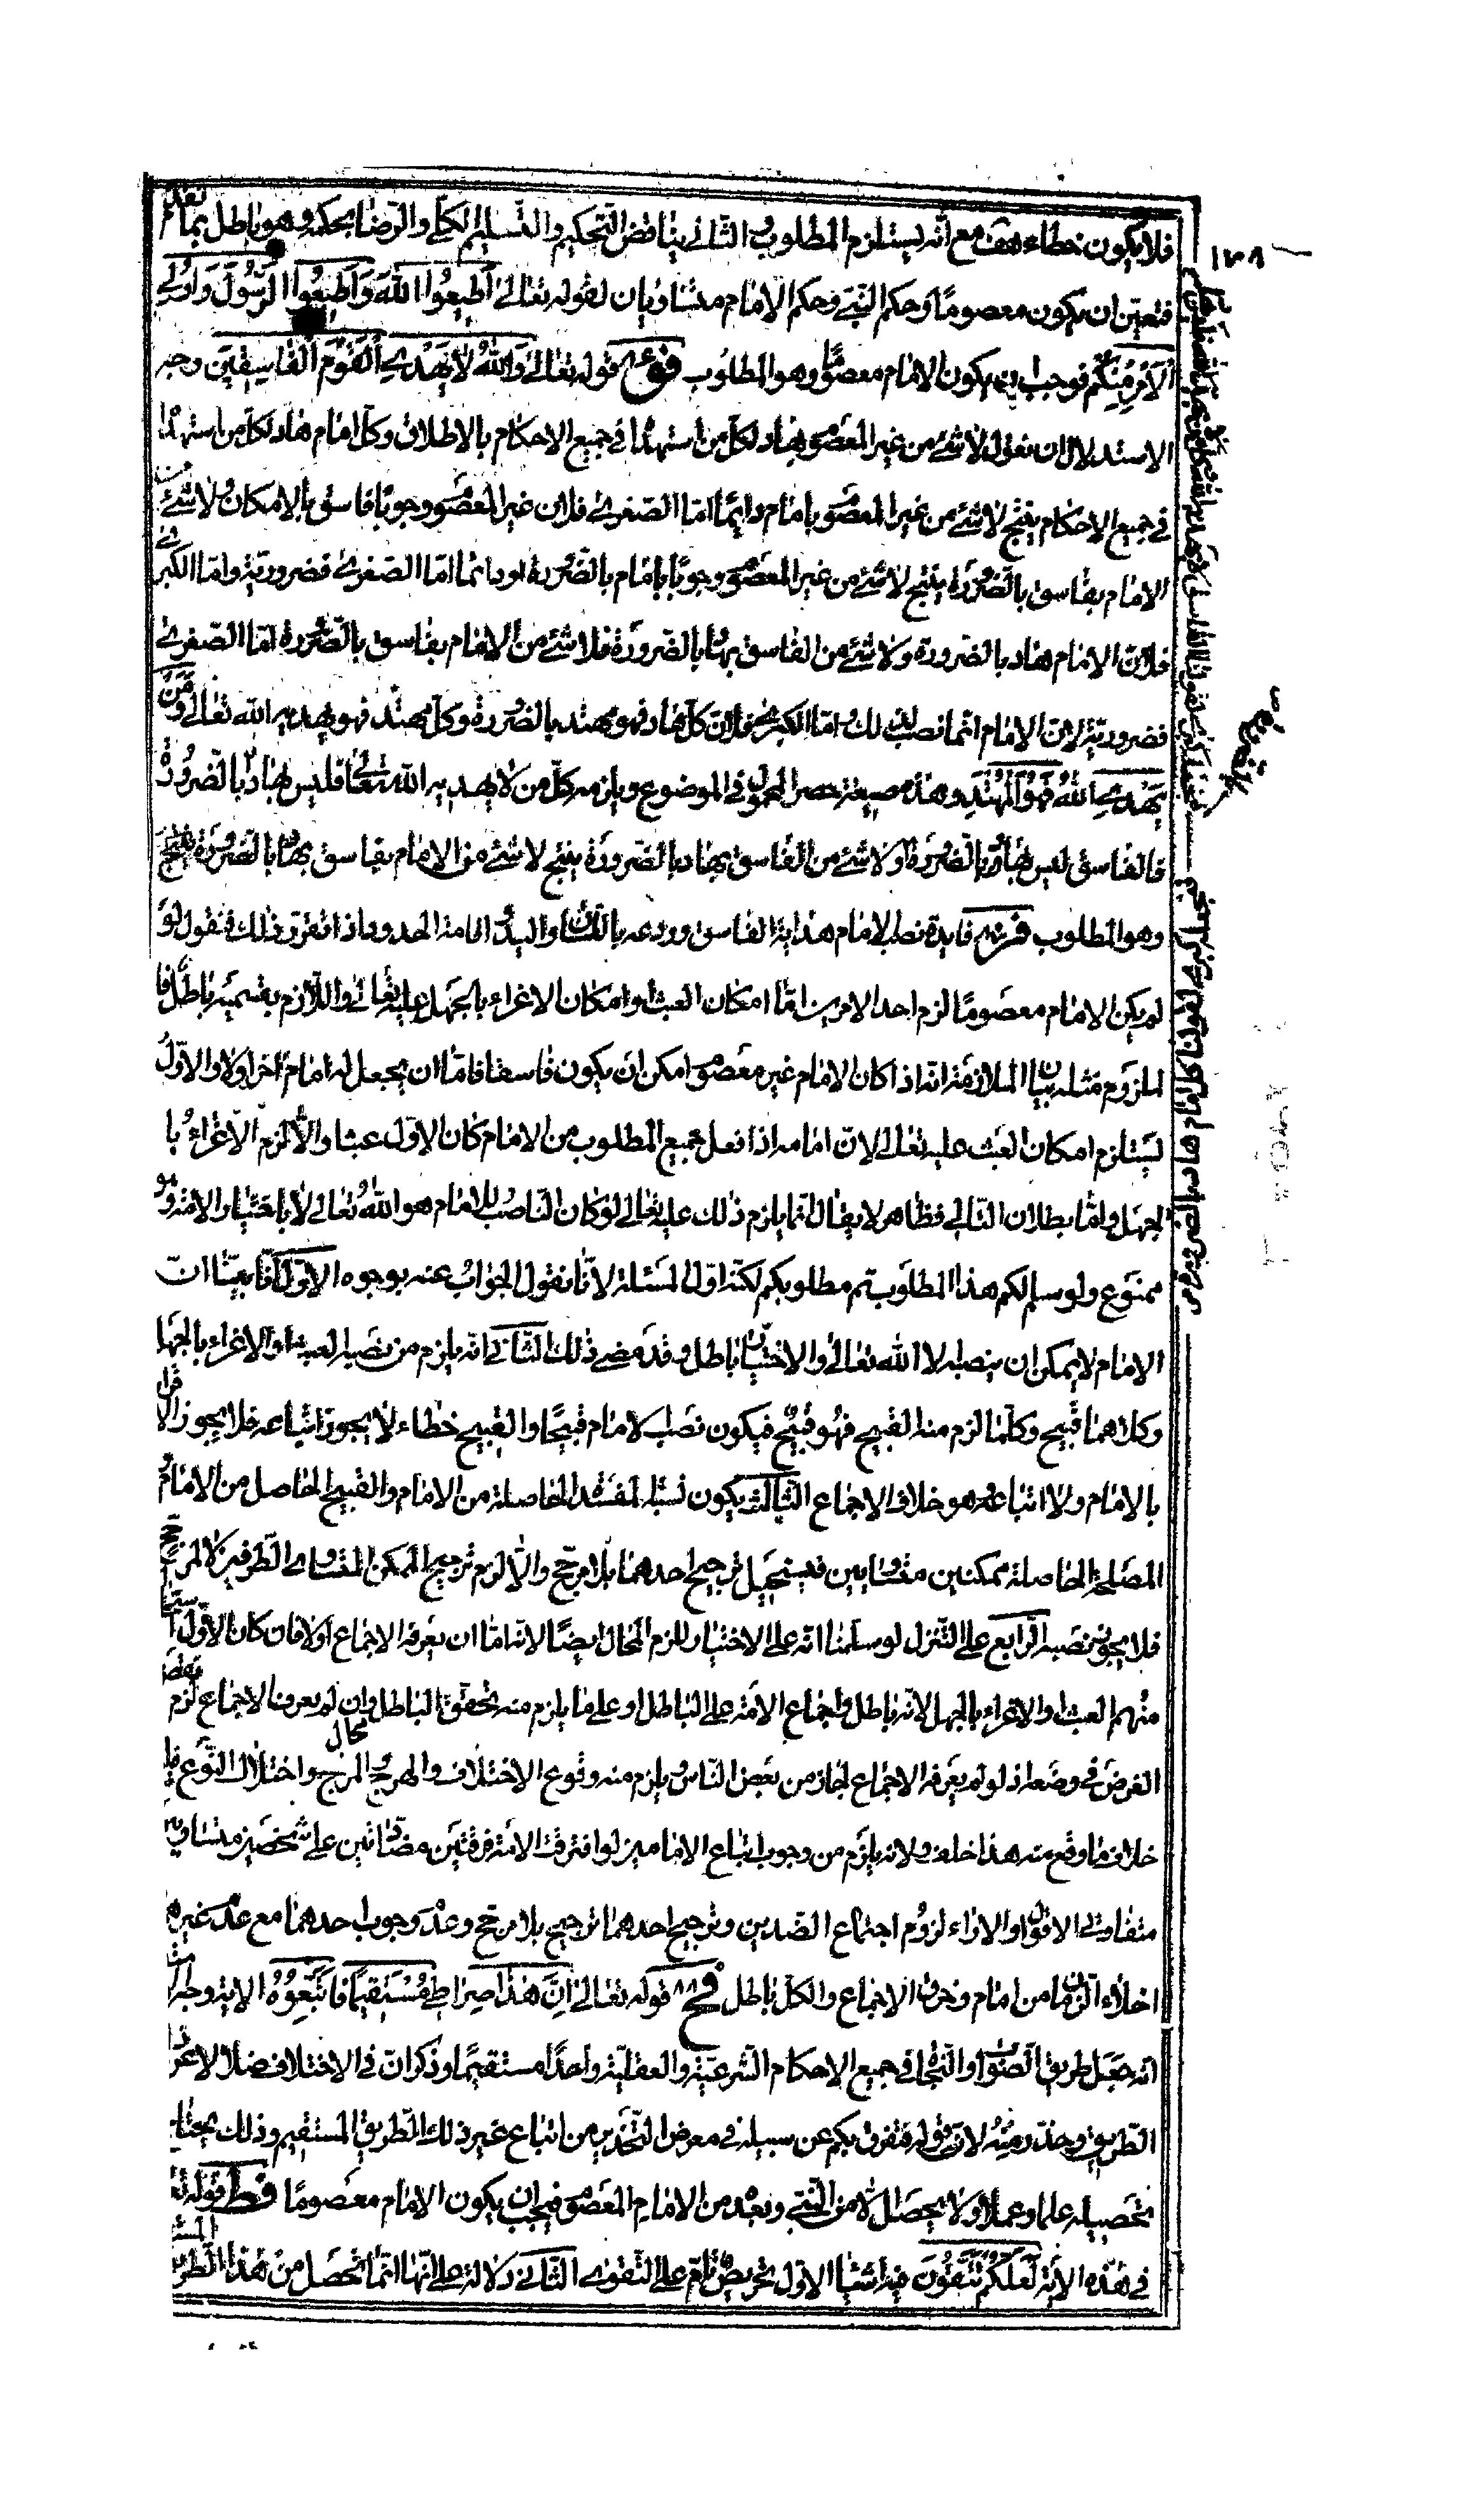 فلا يكون خطاء هف مع انه يستلزم المطلوب الثاني يناقض التحكيم والتسليم الكلي والرضا بحكمه وهو باطل بما تقدم
فتعين ان يكون معصوما وحكم النبي وحكم الامام متساويان لقوله تعالى اطيعوا الله واطيعوا الرسول واولي
الامر منكم فوجب ان يكون الامام معصوما وهو المطلوب قوله تعالى والله لا يهدي القوم الفاسقين وجه
الاستدلال ان نقول لا شئ من غير المعصوم بهاد لكل من استهداه في جميع الاحكام بالاطلاق وكل امام هاد لكل من استهداه
في جميع الاحكام ينتج لا شئ من غير المعصوم بامام دايما اما الصغرى فلان غير المعصوم وجوبا فاسق بالامكان ولا شئ من
الامام بفاسق بالضرورة ينتج لا شئ من غير المعصوم وجوبا بامام بالضرورة او دائما اما الصغرى فضرورية واما الكبرى
فلان الامام هاد بالضرورة ولا شئ من الفاسق بهاد بالضرورة فلا شئ من الامام بفاسق بالضرورة اما الصغرى
فضرورية لان الامام انما نصب لذلك واما الكبرى فلان كل هاد فهو مهتد بالضرورة وكل مهتد فهو يهديه الله تعالى ومن
يهدي الله فهو المهتد وهذه صيغة حصر المحمول في الموضوع ويلزمه كل من لا يهديه الله تعالى فليس بهاد بالضرورة
فالفاسق ليس بهاد بالضرورة ولا شئ من الفاسق بهاد بالضرورة ينتج لا شئ من الامام بفاسق بالضرورة
وهو المطلوب فايدة نصب الامام هداية الفاسق وردعه باللسان واليد واقامة الحدود اذا تقرر ذلك فنقول لو
لم يكن الامام معصوما لزم احد الامرين اما امكان العبث او امكان الاغراء بالجهل عليه تعالى واللازم بقسميه باطل فا
لملزوم مثله بيان الملازمة انه اذا كان الامام غير معصوم امكن ان يكون فاسقا فاما ان يجعل له امام اخر اولا والاول
يستلزم امكان العبث عليه تعالى لان امامه اذا فعل جميع المطلوب من الامام كان الاول عبثا والا لزم الاغراء با
لجهل واما بطلان التالي فظاهر لا يقال انما يلزم ذلك عليه تعالى لو كان الناصب للامام هو الله تعالى لا باختيار الامة وهو
ممنوع ولو سلم لكم هذا المطلوب تم مطلوبكم لكنه اول المسئلة لانا نقول الجواب عنه بوجوه الاول انا بينا ان
الامام لا يمكن ان ينصبه الا الله تعالى والاختيار باطل وقد مضى ذلك الثاني انه يلزم من نصبه العبث او الاغراء بالجهل
وكلاهما قبيح وكلما لزم منه القبيح فهو قبيح فيكون نصب الامام قبيحا والقبيح خطاء لا يجوز اتباعه فلا يجوز الاقرار
بالامام ولا اتباعه وهو خلاف الاجماع الثالث يكون نسبة المفسدة الحاصلة من الامام والقبيح الحاصل من الامام و
المصلحة الحاصلة ممكنين متساويين فيستحيل ترجيح احدهما بلا مرجح والا لزم ترجيح الممكن المتساوى الطرفين لا لمرجح
فلا يجوز نصبه الرابع على التنزل لو سلمنا انه على الاختيار للزم المحال ايضا لانه اما ان يعرفه الاجماع اولا فان كان الاول
منهم العبث او الاغراء بالجهل لانه باطل واجماع الامة على الباطل او على ما يلزم منه تحقق الباطل وان لم يعرف الاجماع لزم نقض
الغرض في وضعه اذ لو لم يعرفه الاجماع لجاز من بعض الناس ويلزم منه وقوع الاختلاف والهرج والمرج واختلال النوع محال
خلاف ما وقع منه هذا خلف ولانه يلزم من وجوب اتباع الامامين لو افترقت الامة فرقتين على شخصين متساويين
متفاوتى الاقوال والاراء لزوم اجتماع الضدين وترجيح احدهما ترجيح بلا مرجح وعدم وجوب احدهما مع عدم غيره
اخلاء الزمان من امام وخرق الاجماع والكل باطل قوله تعالى ان هذا صراطي مستقيما فاتبعوه الاية وجه
انه جعل طريق الصواب والنجاة في جميع الاحكام الشرعية والعقلية واحدا مستقيما وذكر ان في الاختلاف ضلالا عن
الطريق وحذر منه لان قوله فتفرق بكم عن سبيله في معرض التحذير من اتباع غير ذلك الطريق المستقيم وذلك
تحصيله علما وعملا ولا يحصل الا من النبي وبعده من الامام المعصوم فيجب ان يكون الامام معصوما قوله
في هذه الاية لعلكم تتقون فيه اشياء الاول تحريض تام على التقوى الثاني دلالة على انها انما تحصل من هذا